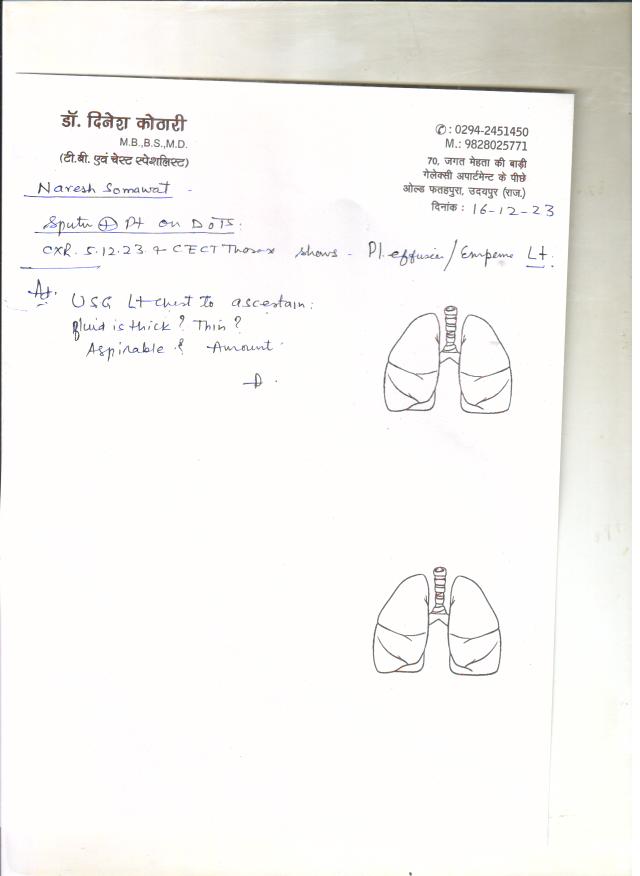 डॉ. दिनेश कोठारी
M.B.,B.S.,M.D.
(टी.बी. एवं चेस्ट स्पेशलिस्ट)
✆: 0294-2451450
M.: 9828025771
70, जगत मेहता की बाड़ी
गेलेक्सी अपार्टमेन्ट के पीछे
ओल्ड फतहपुरा, उदयपुर (राज.)
दिनांक : 16-12-23
Naresh Somawat -
Sputu ⊕ Pt on DOTS:
CXR. 5.12.23 & CECT Thorax shows - Pl. effusion/Empeme Lt.
USG Lt chest to ascertain:
fluid is thick? Thin?
Aspirable & Amount